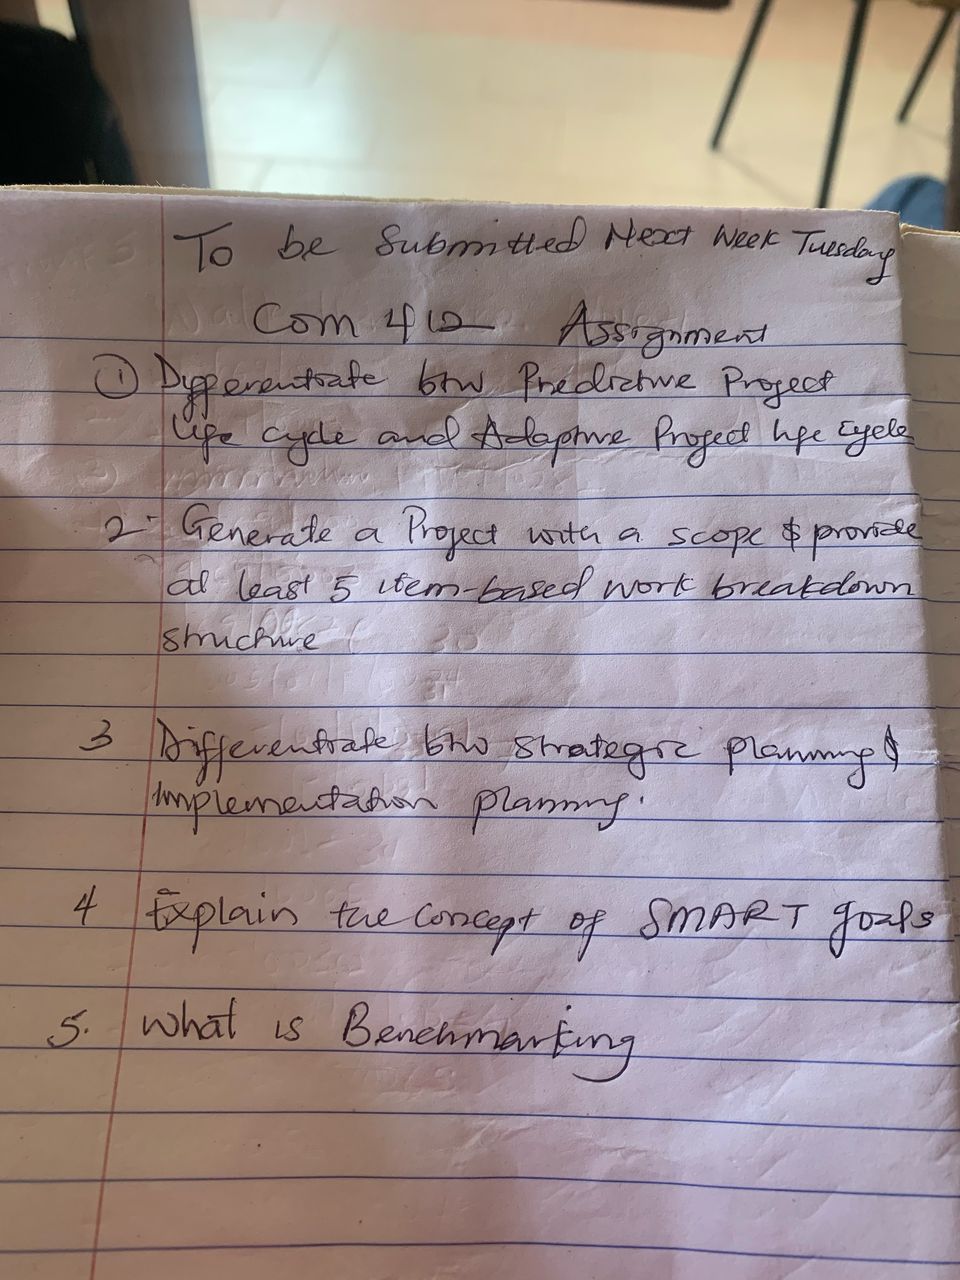 To be Submitted Next Week Tuesday
Com 412 Assignment
① Differentiate btw Predictive Project
life cycle and Adaptive Project life cycle
2- Generate a Project with a scope & provide
at least 5 item-based work breakdown
structure
3 Differentiate btw strategic planning &
implementation planning.
4 Explain the concept of SMART goals
5. What is Benchmarking